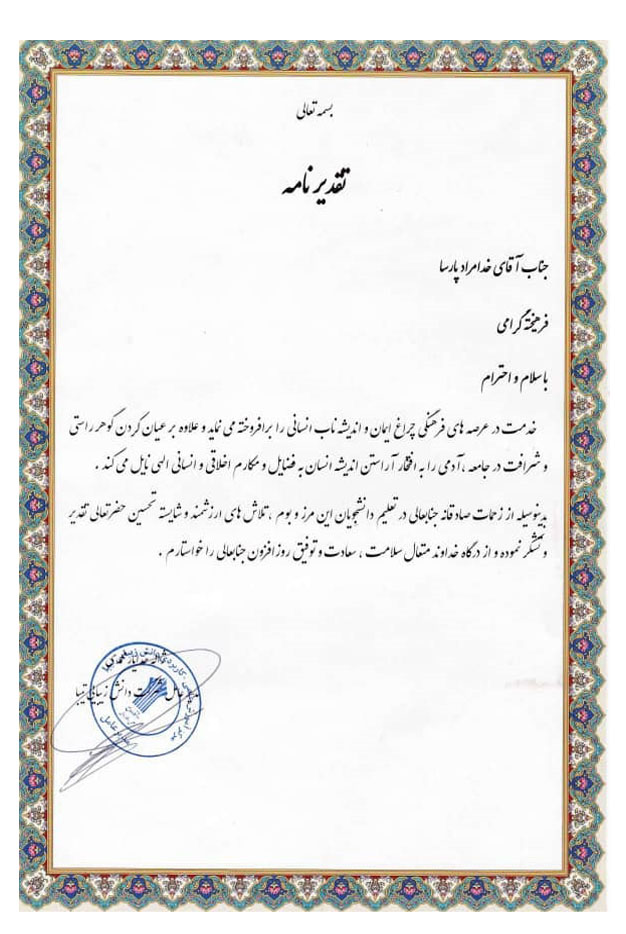 بسمه تعالی
تقدیر نامه
جناب آقای خدامراد پارسا
فرهیخته گرامی
باسلام و احترام
خدمت در عرصه های فرهنگی چراغ ایمان و اندیشه ناب انسانی را برافروخته می نماید و علاوه بر عیان کردن گوهر راستی
و شرافت در جامعه ، آدمی را به افتخار آراستن اندیشه انسان به فضایل و مکارم اخلاقی و انسانی الهی نایل می کند .
بدینوسیله از زحمات صادقانه جنابعالی در تعلیم دانشجویان این مرز و بوم ، تلاش های ارزشمند و شایسته تحسین حضرتعالی تقدیر
و تشکر نموده و از درگاه خداوند متعال سلامت ، سعادت و توفیق روز افزون جنابعالی را خواستارم .
دانش زیبایی تیبا